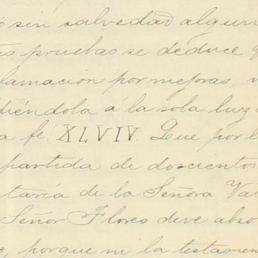 sin salvedad algun
pruebas se deduce q
amación por mejoras,
diéndola a la sola luz
a fe. XLVIV. Que por l
partida de doscientos
taría de la Señora Va
Señor Flores deve abso
porque ni la testamen